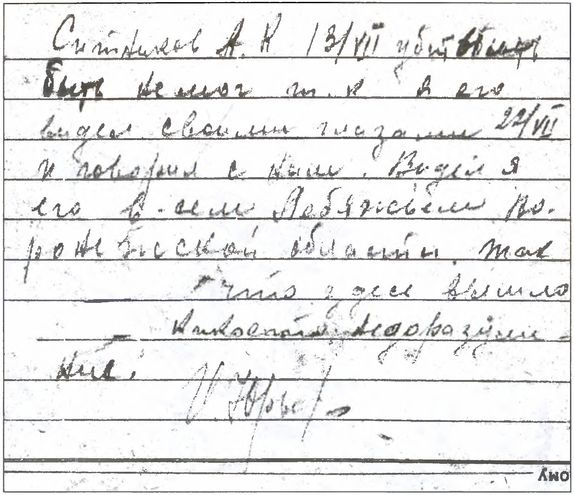 Ситников А. К 13/VII убит
быть не мог т.к я его
видел своими глазами 22/VII
и говорил с ним. Видел я
его в селе Лебяжьем Во-
ронежской области. Так
что здесь вышло
какое-то недоразуме-
ние.
И. Юрьев
ому